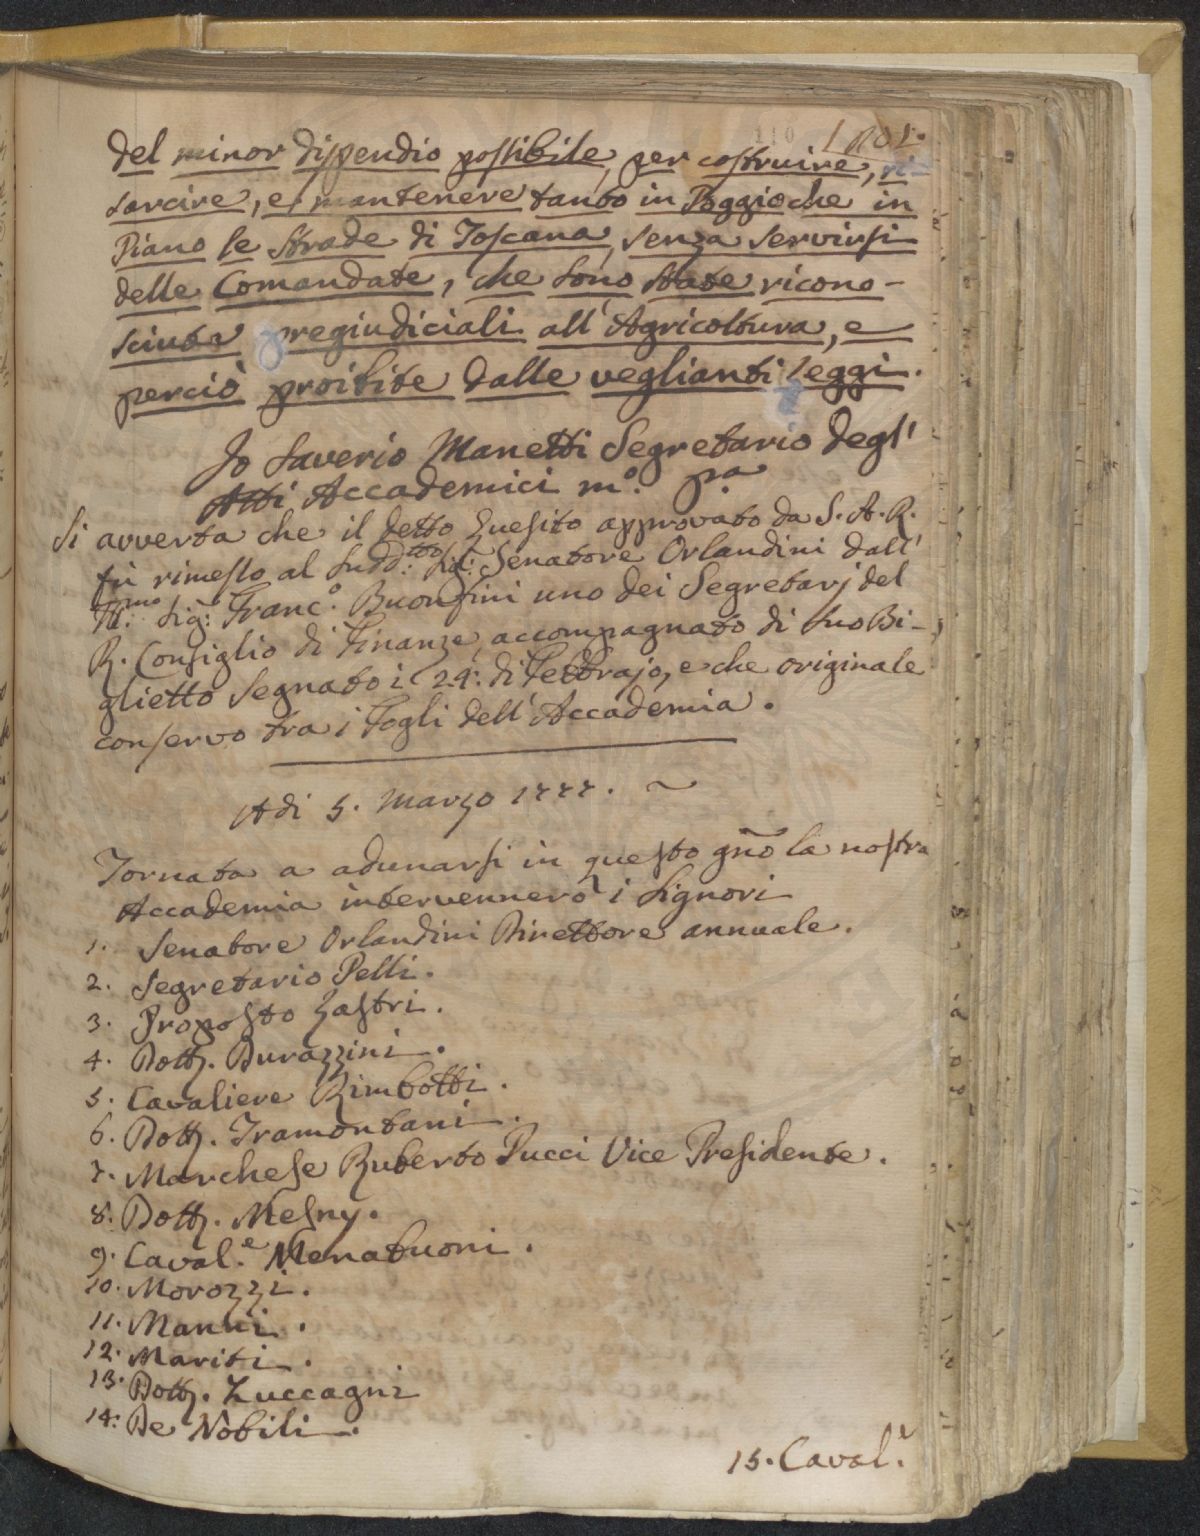 110 1801.
del minor dispendio possibile, per costruire, ri=
sarcire, e mantenere tanto in Poggio che in
Piano le Strade di Toscana, senza servirsi
delle Comandate, che sono state ricono-
sciute pregiudiciali all'Agricoltura, e
perciò proibite dalle veglianti leggi.
Io Saverio Manetti Segretario degl'
Atti Accademici m.º p.ª
Si avverta che il detto Quesito approvato da S. A. R.
fù rimesso al Sudd:tto Sig: Senatore Orlandini dall'
Ill:mo Sig: Franc:º Buonfini uno dei Segretarj del
R. Consiglio di Finanze, accompagnato di suo Bi-
glietto segnato i 24: di Febbrajo, e che originale
conservo tra i Fogli dell'Accademia.
Adi 5. Marzo 1777. ~
Tornata a adunarsi in questo gno la nostra
Accademia intervennero i Signori
1. Senatore Orlandini Direttore annuale.
2. Segretario Pelli.
3. Proposto Lastri.
4. Dott. Durazzini.
5. Cavaliere Rimbotti.
6. Dott. Tramontani.
7. Marchese Ruberto Pucci Vice Presidente.
8. Dott. Mesny.
9. Caval.e Menabuoni.
10. Morozzi.
11. Manni.
12. Mariti.
13. Dott. Zuccagni
14: De Nobili.
15. Caval.